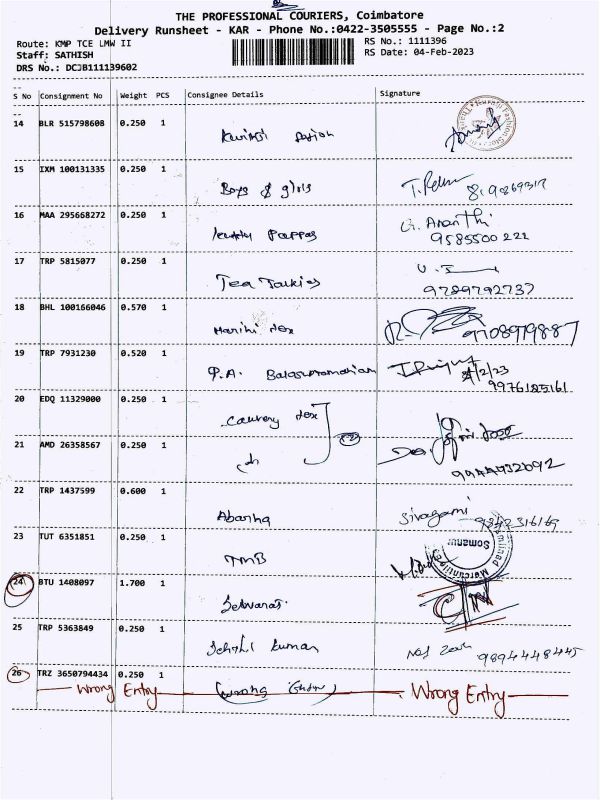 THE PROFESSIONAL COURIERS, Coimbatore
Delivery Runsheet - KAR - Phone No.:0422-3505555 - Page No.:2
Route: KMP TCE LMW II RS No.: 1111396
Staff: SATHISH RS Date: 04-Feb-2023
DRS No.: DCJB111139602
S No Consignment No Weight PCS Consignee Details Signature
14 BLR 515798608 0.250 1
15 IXM 100131335 0.250 1 Boys & girls
16 MAA 295668272 0.250 1 G. Ananthi
9585500222
17 TRP 5815077 0.250 1 Tea Talkies
9789792737
18 BHL 100166046 0.570 1 Harini tex 9708979887
19 TRP 7931230 0.520 1 P.A. Balasupramaniam
9976185161
20 EDQ 11329000 0.250 1 Cauvery tex
21 AMD 26358567 0.250 1
9944932092
22 TRP 1437599 0.600 1 Sivagami
23 TUT 6351851 0.250 1 TMB Somanur
24 BTU 1408097 1.700 1 Selvaras
25 TRP 5363849 0.250 1 kumar
9894448445
26 TRZ 3650794434 0.250 1
Wrong Entry Wrong Entry